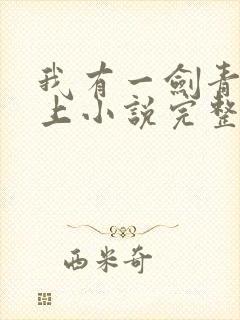 我有一劍青
上小說完整
西米奇